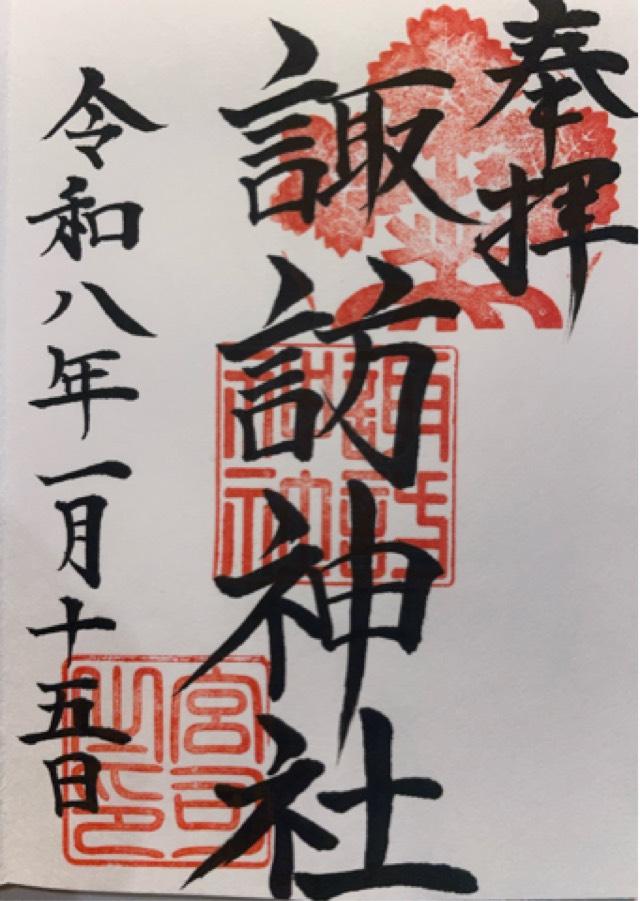 奉拝
諏訪神社
諏訪神社
宮司之印
令和八年一月十五日